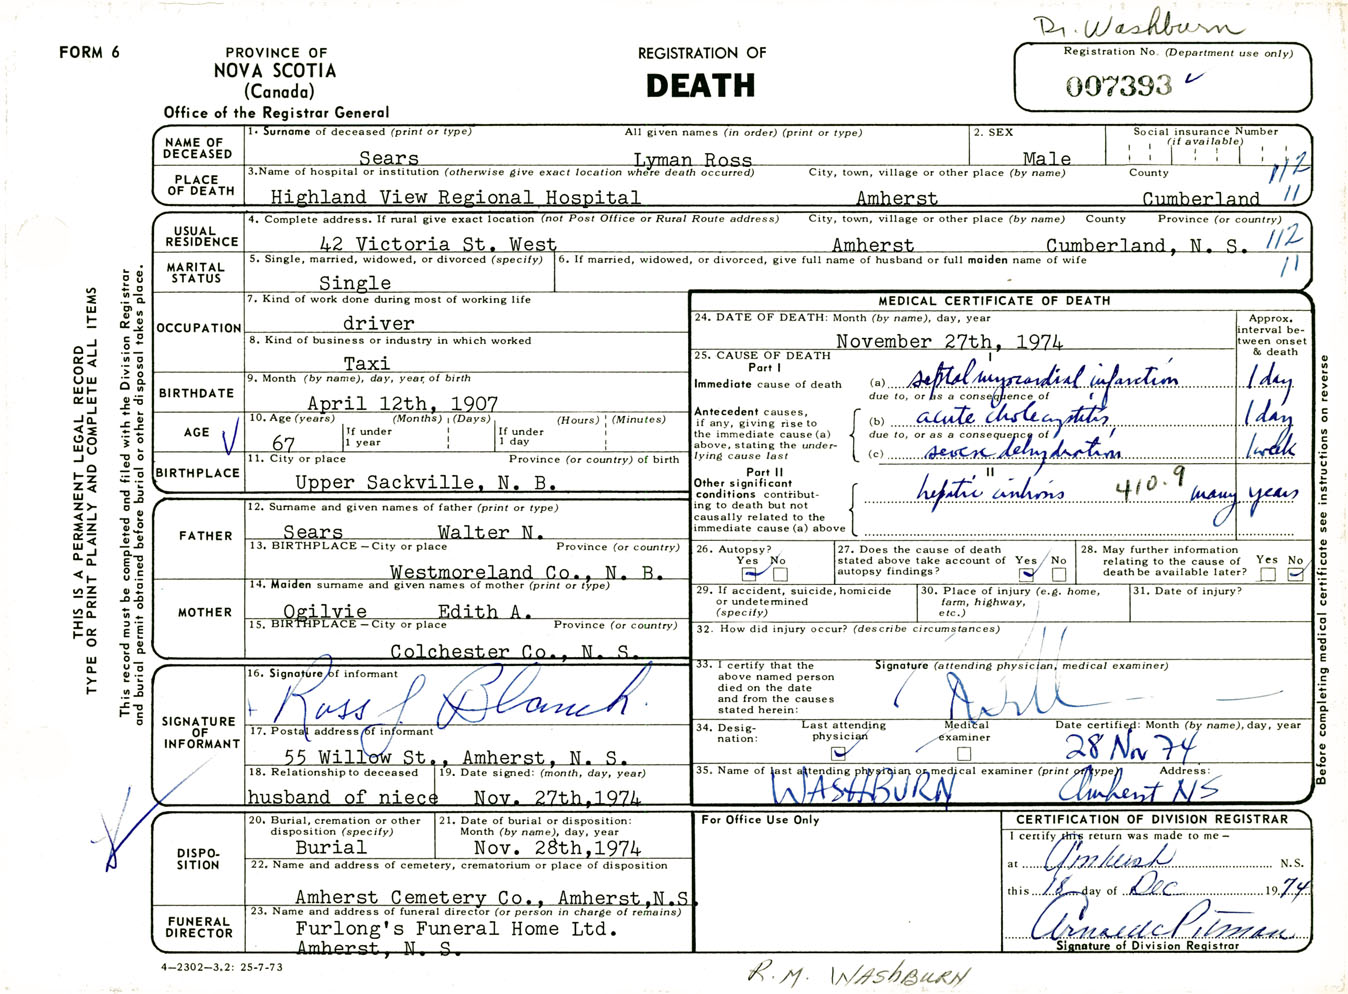 Dr. Washburn
FORM 6
PROVINCE OF
NOVA SCOTIA
(Canada)
Office of the Registrar General
REGISTRATION OF
DEATH
Registration No. (Department use only)
007393
NAME OF DECEASED
1. Surname of deceased (print or type) All given names (in order) (print or type)
Sears Lyman Ross
2. SEX
Male
Social insurance Number
(if available)
PLACE OF DEATH
3. Name of hospital or institution (otherwise give exact location where death occurred) City, town, village or other place (by name) County
Highland View Regional Hospital Amherst Cumberland
112
11
USUAL RESIDENCE
4. Complete address. If rural give exact location (not Post Office or Rural Route address) City, town, village or other place (by name) County Province (or country)
42 Victoria St. West Amherst Cumberland, N. S.
112
11
MARITAL STATUS
5. Single, married, widowed, or divorced (specify)
Single
6. If married, widowed, or divorced, give full name of husband or full maiden name of wife
OCCUPATION
7. Kind of work done during most of working life
driver
8. Kind of business or industry in which worked
Taxi
BIRTHDATE
9. Month (by name), day, year, of birth
April 12th, 1907
AGE
10. Age (years) (Months) (Days) (Hours) (Minutes)
67 If under 1 year If under 1 day
BIRTHPLACE
11. City or place Province (or country) of birth
Upper Sackville, N. B.
FATHER
12. Surname and given names of father (print or type)
Sears Walter N.
13. BIRTHPLACE – City or place Province (or country)
Westmoreland Co., N. B.
MOTHER
14. Maiden surname and given names of mother (print or type)
Ogilvie Edith A.
15. BIRTHPLACE – City or place Province (or country)
Colchester Co., N. S.
SIGNATURE OF INFORMANT
16. Signature of informant
Ross J Blanch
17. Postal address of informant
55 Willow St., Amherst, N. S.
18. Relationship to deceased
husband of niece
19. Date signed: (month, day, year)
Nov. 27th,1974
DISPO-
SITION
20. Burial, cremation or other disposition (specify)
Burial
21. Date of burial or disposition:
Month (by name), day, year
Nov. 28th,1974
22. Name and address of cemetery, crematorium or place of disposition
Amherst Cemetery Co., Amherst,N.S.
FUNERAL DIRECTOR
23. Name and address of funeral director (or person in charge of remains)
Furlong's Funeral Home Ltd.
Amherst, N. S.
4–2302–3.2: 25-7-73
THIS IS A PERMANENT LEGAL RECORD
TYPE OR PRINT PLAINLY AND COMPLETE ALL ITEMS
This record must be completed and filed with the Division Registrar
and burial permit obtained before burial or other disposal takes place.
MEDICAL CERTIFICATE OF DEATH
24. DATE OF DEATH: Month (by name), day, year
November 27th, 1974
Approx. interval between onset & death
25. CAUSE OF DEATH
Part I
I
Immediate cause of death (a) septal myocardial infarction 1 day
due to, or as a consequence of
Antecedent causes, if any, giving rise to the immediate cause (a) above, stating the underlying cause last
(b) acute cholecystitis 1 day
due to, or as a consequence of
(c) severe dehydration 1 week
Part II
II
Other significant conditions contributing to death but not causally related to the immediate cause (a) above
hepatic cirrhosis 410.9 many years
26. Autopsy?
Yes No
27. Does the cause of death stated above take account of autopsy findings?
Yes No
28. May further information relating to the cause of death be available later?
Yes No
29. If accident, suicide, homicide or undetermined (specify)
30. Place of injury (e.g. home, farm, highway, etc.)
31. Date of injury?
32. How did injury occur? (describe circumstances)
33. I certify that the above named person died on the date and from the causes stated herein:
Signature (attending physician, medical examiner)
34. Desig-
nation:
Last attending physician
Medical examiner
Date certified: Month (by name), day, year
28 Nov 74
35. Name of last attending physician or medical examiner (print or type) Address:
WASHBURN Amherst NS
Before completing medical certificate see instructions on reverse
For Office Use Only
CERTIFICATION OF DIVISION REGISTRAR
I certify this return was made to me –
at Amherst N.S.
this 18 day of Dec 1974
Pitman
Signature of Division Registrar
R. M. WASHBURN